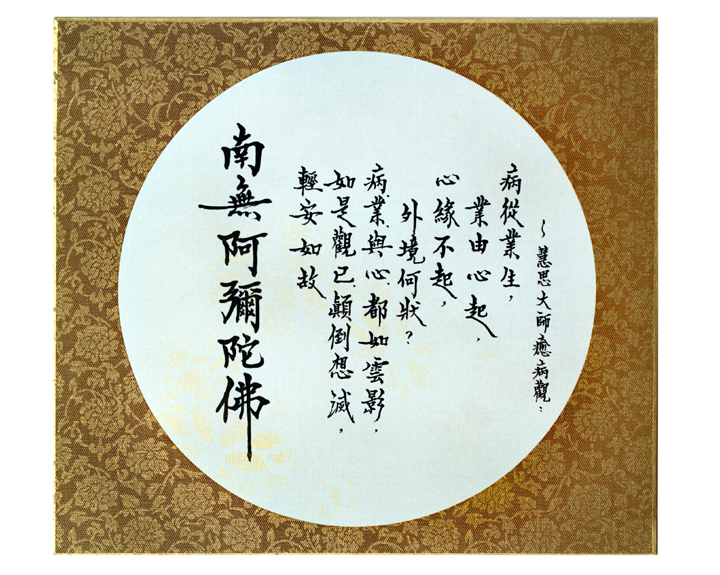 ～慧思大師癒病觀：
病從業生，
業由心起，
心緣不起，
外境何狀？
病、業、與心、都如雲影．
如是觀已、顚倒想滅，
輕安如故
南無阿彌陀佛